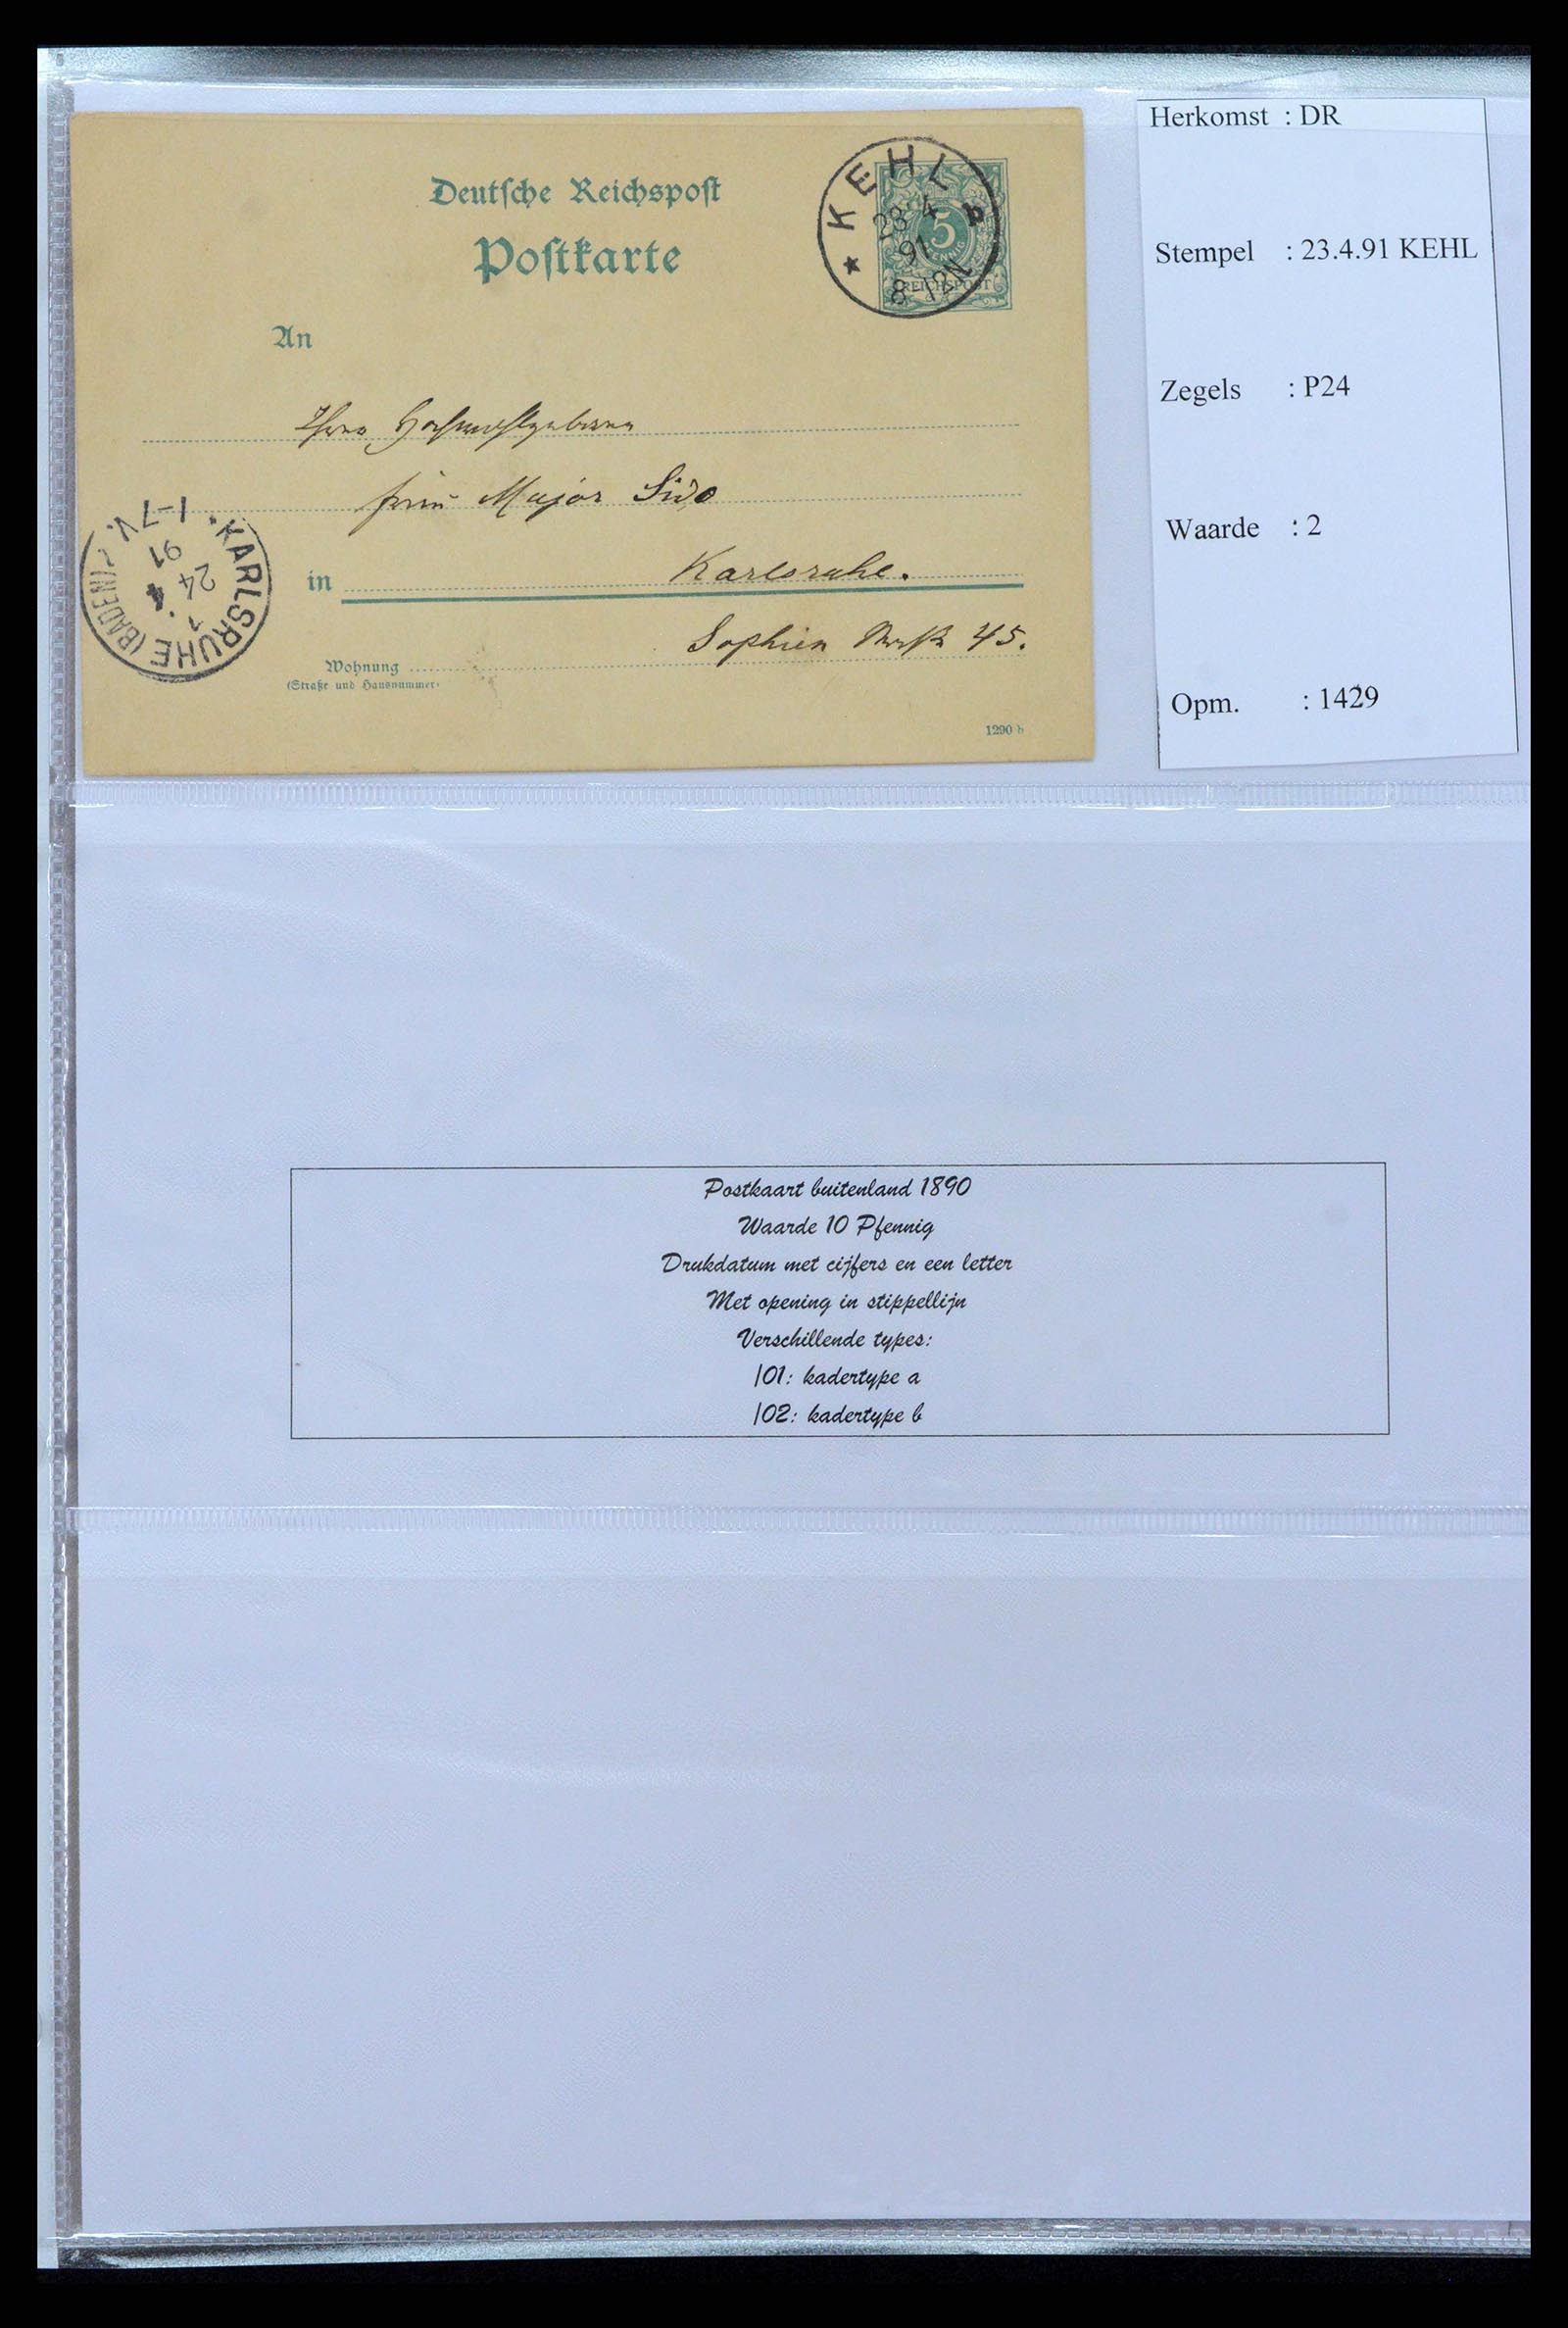 Deutsche Reichspost
Postkarte
An
Frau Major Sido
in Karlsruhe.
Sophien Straße 45.
Wohnung
(Straße und Hausnummer)
1290 b
★ KEHL b
23 4
91
8-12N
5
REICHSPOST
KARLSRUHE (BADEN)
24 4
91
1-7V.
Herkomst : DR
Stempel : 23.4.91 KEHL
Zegels : P24
Waarde : 2
Opm. : 1429
Postkaart buitenland 1890
Waarde 10 Pfennig
Drukdatum met cijfers en een letter
Met opening in stippellijn
Verschillende types:
/01: kadertype a
/02: kadertype b